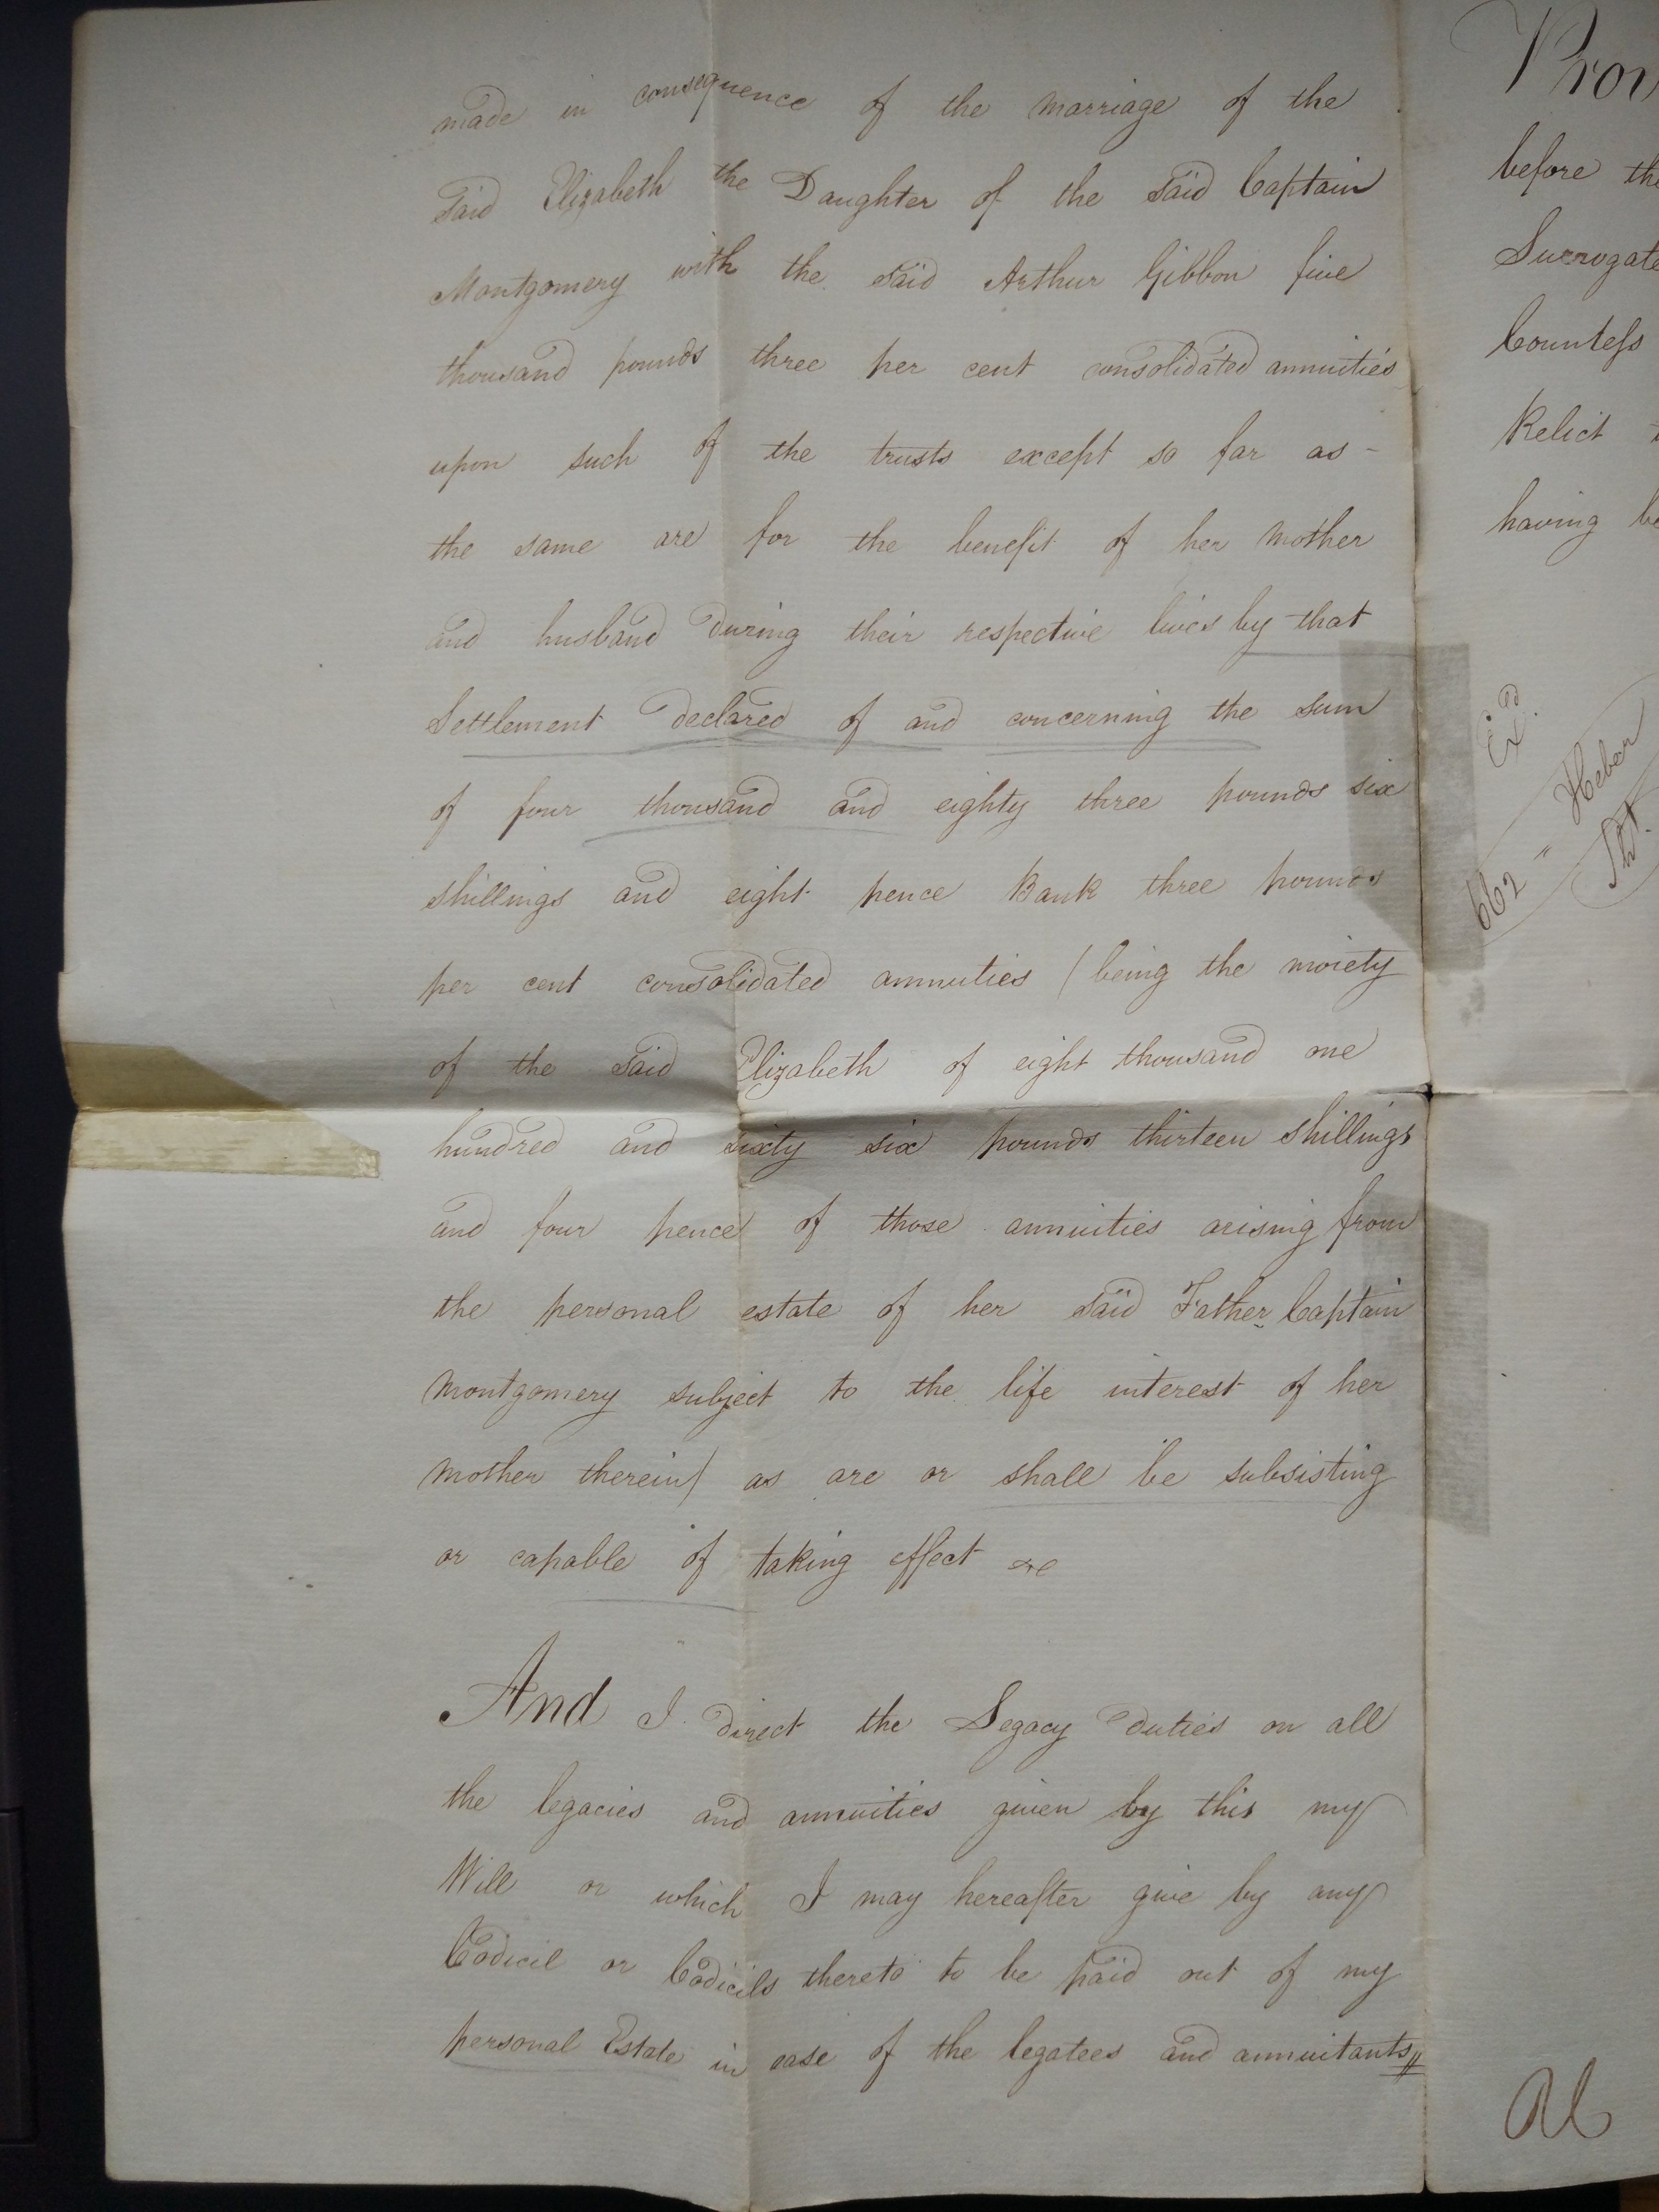 made in consequence of the marriage of the
said Elizabeth the Daughter of the said Captain
Montgomery with the said Arthur Gibbon five
thousand pounds three per cent consolidated annuities
upon such of the trusts except so far as -
the same are for the benefit of her mother
and husband during their respective lives by that
Settlement declared of and concerning the sum
of four thousand and eighty three pounds six
shillings and eight pence Bank three pounds
per cent consolidated annuities (being the moiety
of the said Elizabeth of eight thousand one
hundred and sixty six pounds thirteen shillings
and four pence of those annuities arising from
the personal estate of her said Father Captain
Montgomery subject to the life interest of her
mother therein) as are or shall be subsisting
or capable of taking effect &c
And I direct the Legacy duties on all
the legacies and annuities given by this my
Will or which I may hereafter give by any
Codicil or Codicils thereto to be paid out of my
personal Estate in ease of the legatees and annuitants
Prov
before the
Surrogate
Countess
Relict
having be
Exd
662 " Heber